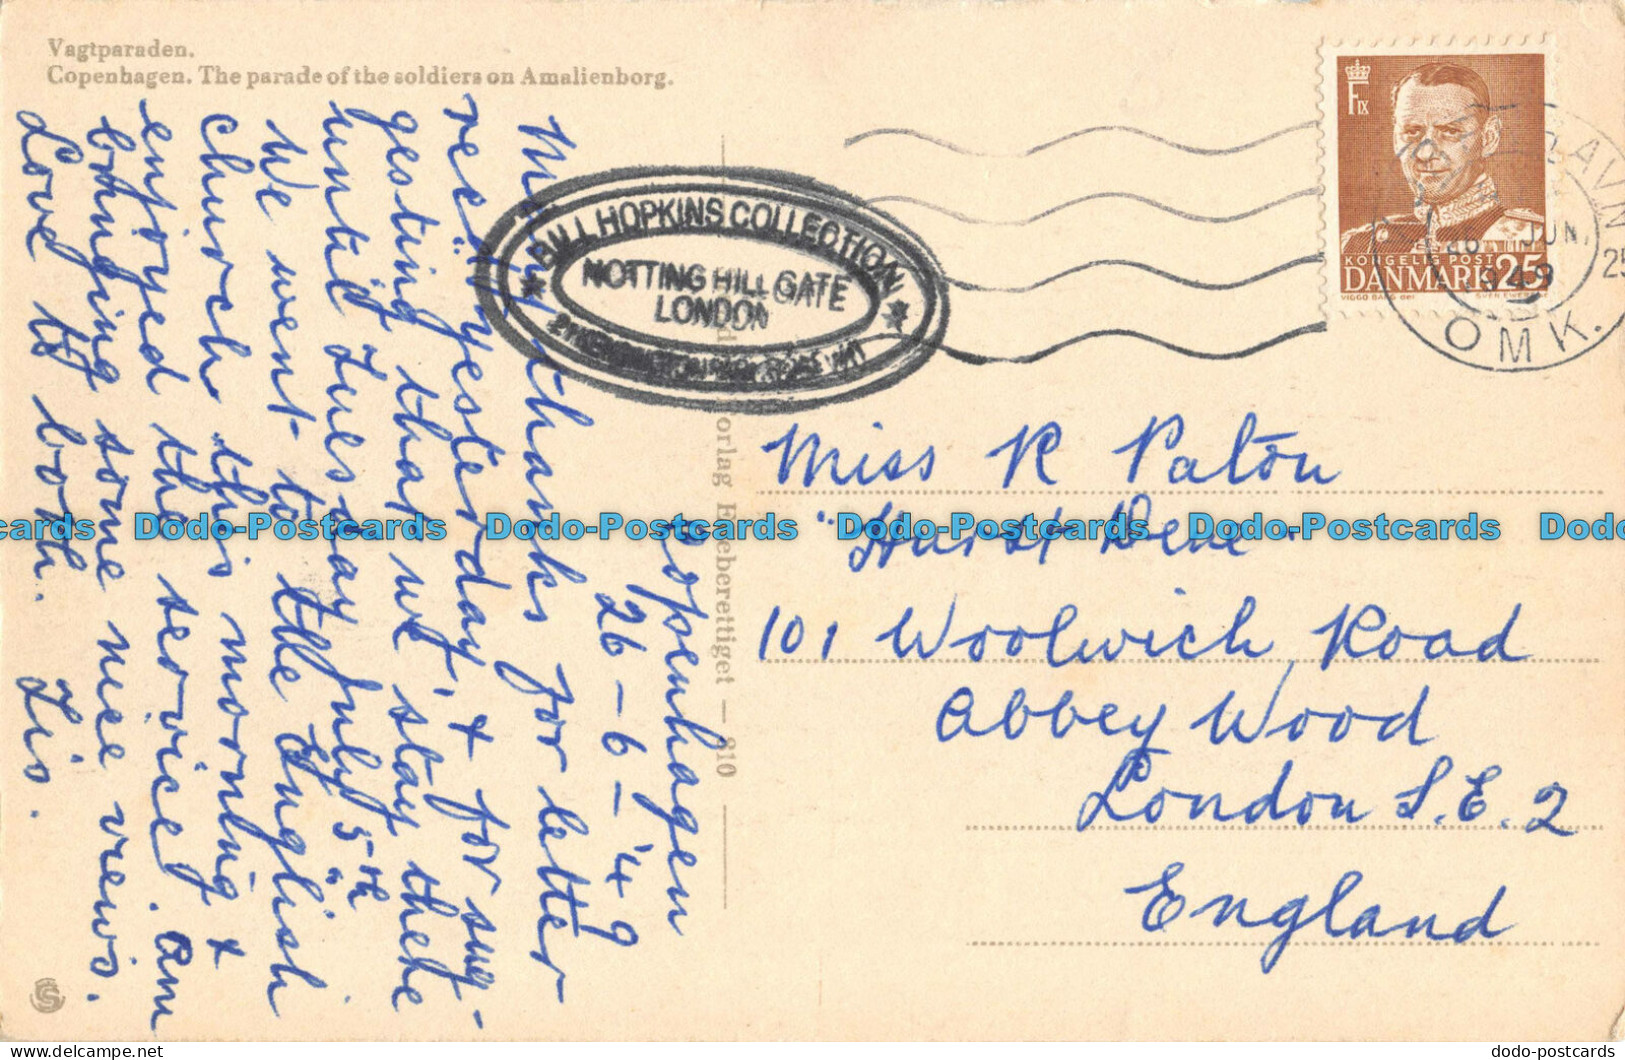 Vagtparaden.
Copenhagen. The parade of the soldiers on Amalienborg.
Copenhagen
26-6-'49
Many thanks for letter
rec'd yesterday, & for sug-
gesting that we stay there
until Tuesday July 5th
We went to the English
church this morning &
enjoyed the service. Am
bringing some nice views.
Love to both. Lis.
BILL HOPKINS COLLECTION
NOTTING HILL GATE
LONDON
Forlag Eneberettiget — 810
F IX
KONGELIG POST
DANMARK 25
VIGGO BANG del.
26 JUN.
1949
OMK.
25
Miss R Paton
"Hurst Dene"
101 Woolwich Road
Abbey Wood
London S.E. 2
England
Dodo-Postcards Dodo-Postcards Dodo-Postcards Dodo-Postcards
dodo-postcards.com